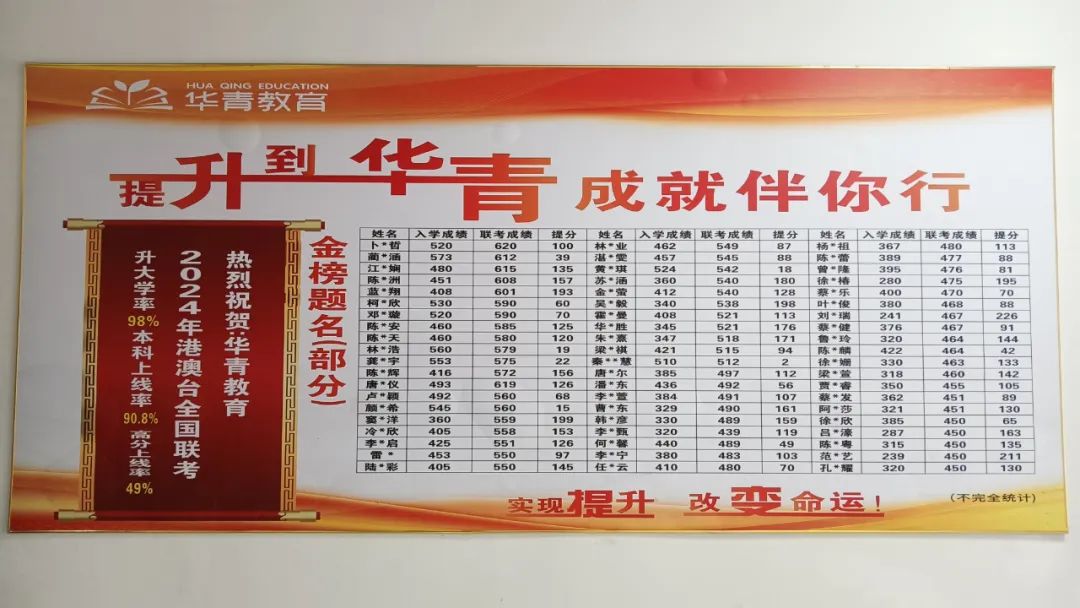 HUA QING EDUCATION
华青教育
提升到华青 成就伴你行
热烈祝贺:华青教育
2024年港澳台全国联考
升大学率98% 本科上线率90.8% 高分上线率49%
金榜题名(部分)
姓名 入学成绩 联考成绩 提分 姓名 入学成绩 联考成绩 提分 姓名 入学成绩 联考成绩 提分
卜*哲 520 620 100 林*业 462 549 87 杨*祖 367 480 113
蔺*涵 573 612 39 湛*雯 457 545 88 陈*蕾 389 477 88
江*娴 480 615 135 黄*琪 524 542 18 曾*隆 395 476 81
陈*洲 451 608 157 苏*涵 360 540 180 徐*椿 280 475 195
蓝*翔 408 601 193 金*萤 412 540 128 蔡*乐 400 470 70
柯*欣 530 590 60 吴*毅 340 538 198 叶*俊 380 468 88
邓*璇 520 590 70 霍*曼 408 521 113 刘*瑞 241 467 226
陈*安 460 585 125 华*胜 345 521 176 蔡*健 376 467 91
陈*天 460 580 120 朱*熹 347 518 171 鲁*玲 320 464 144
林*浩 560 579 19 梁*祺 421 515 94 陈*麟 422 464 42
龚*宇 553 575 22 秦**慧 510 512 2 徐*姗 330 463 133
陈*辉 416 572 156 唐*尔 385 497 112 梁*萱 318 460 142
唐*仪 493 619 126 潘*东 436 492 56 贾*睿 350 455 105
卢*颖 492 560 68 李*萱 384 491 107 蔡*发 362 451 89
颜*希 545 560 15 曹*东 329 490 161 阿*莎 321 451 130
窦*洋 360 559 199 韩*彦 330 489 159 徐*欣 385 450 65
冷*欣 405 558 153 李*甄 320 439 119 吕*濠 287 450 163
李*启 425 551 126 何*馨 440 489 49 陈*粤 315 450 135
雷* 453 550 97 李*宁 380 483 103 范*艺 239 450 211
陆*彩 405 550 145 任*云 410 480 70 孔*耀 320 450 130
实现提升 改变命运!
(不完全统计)